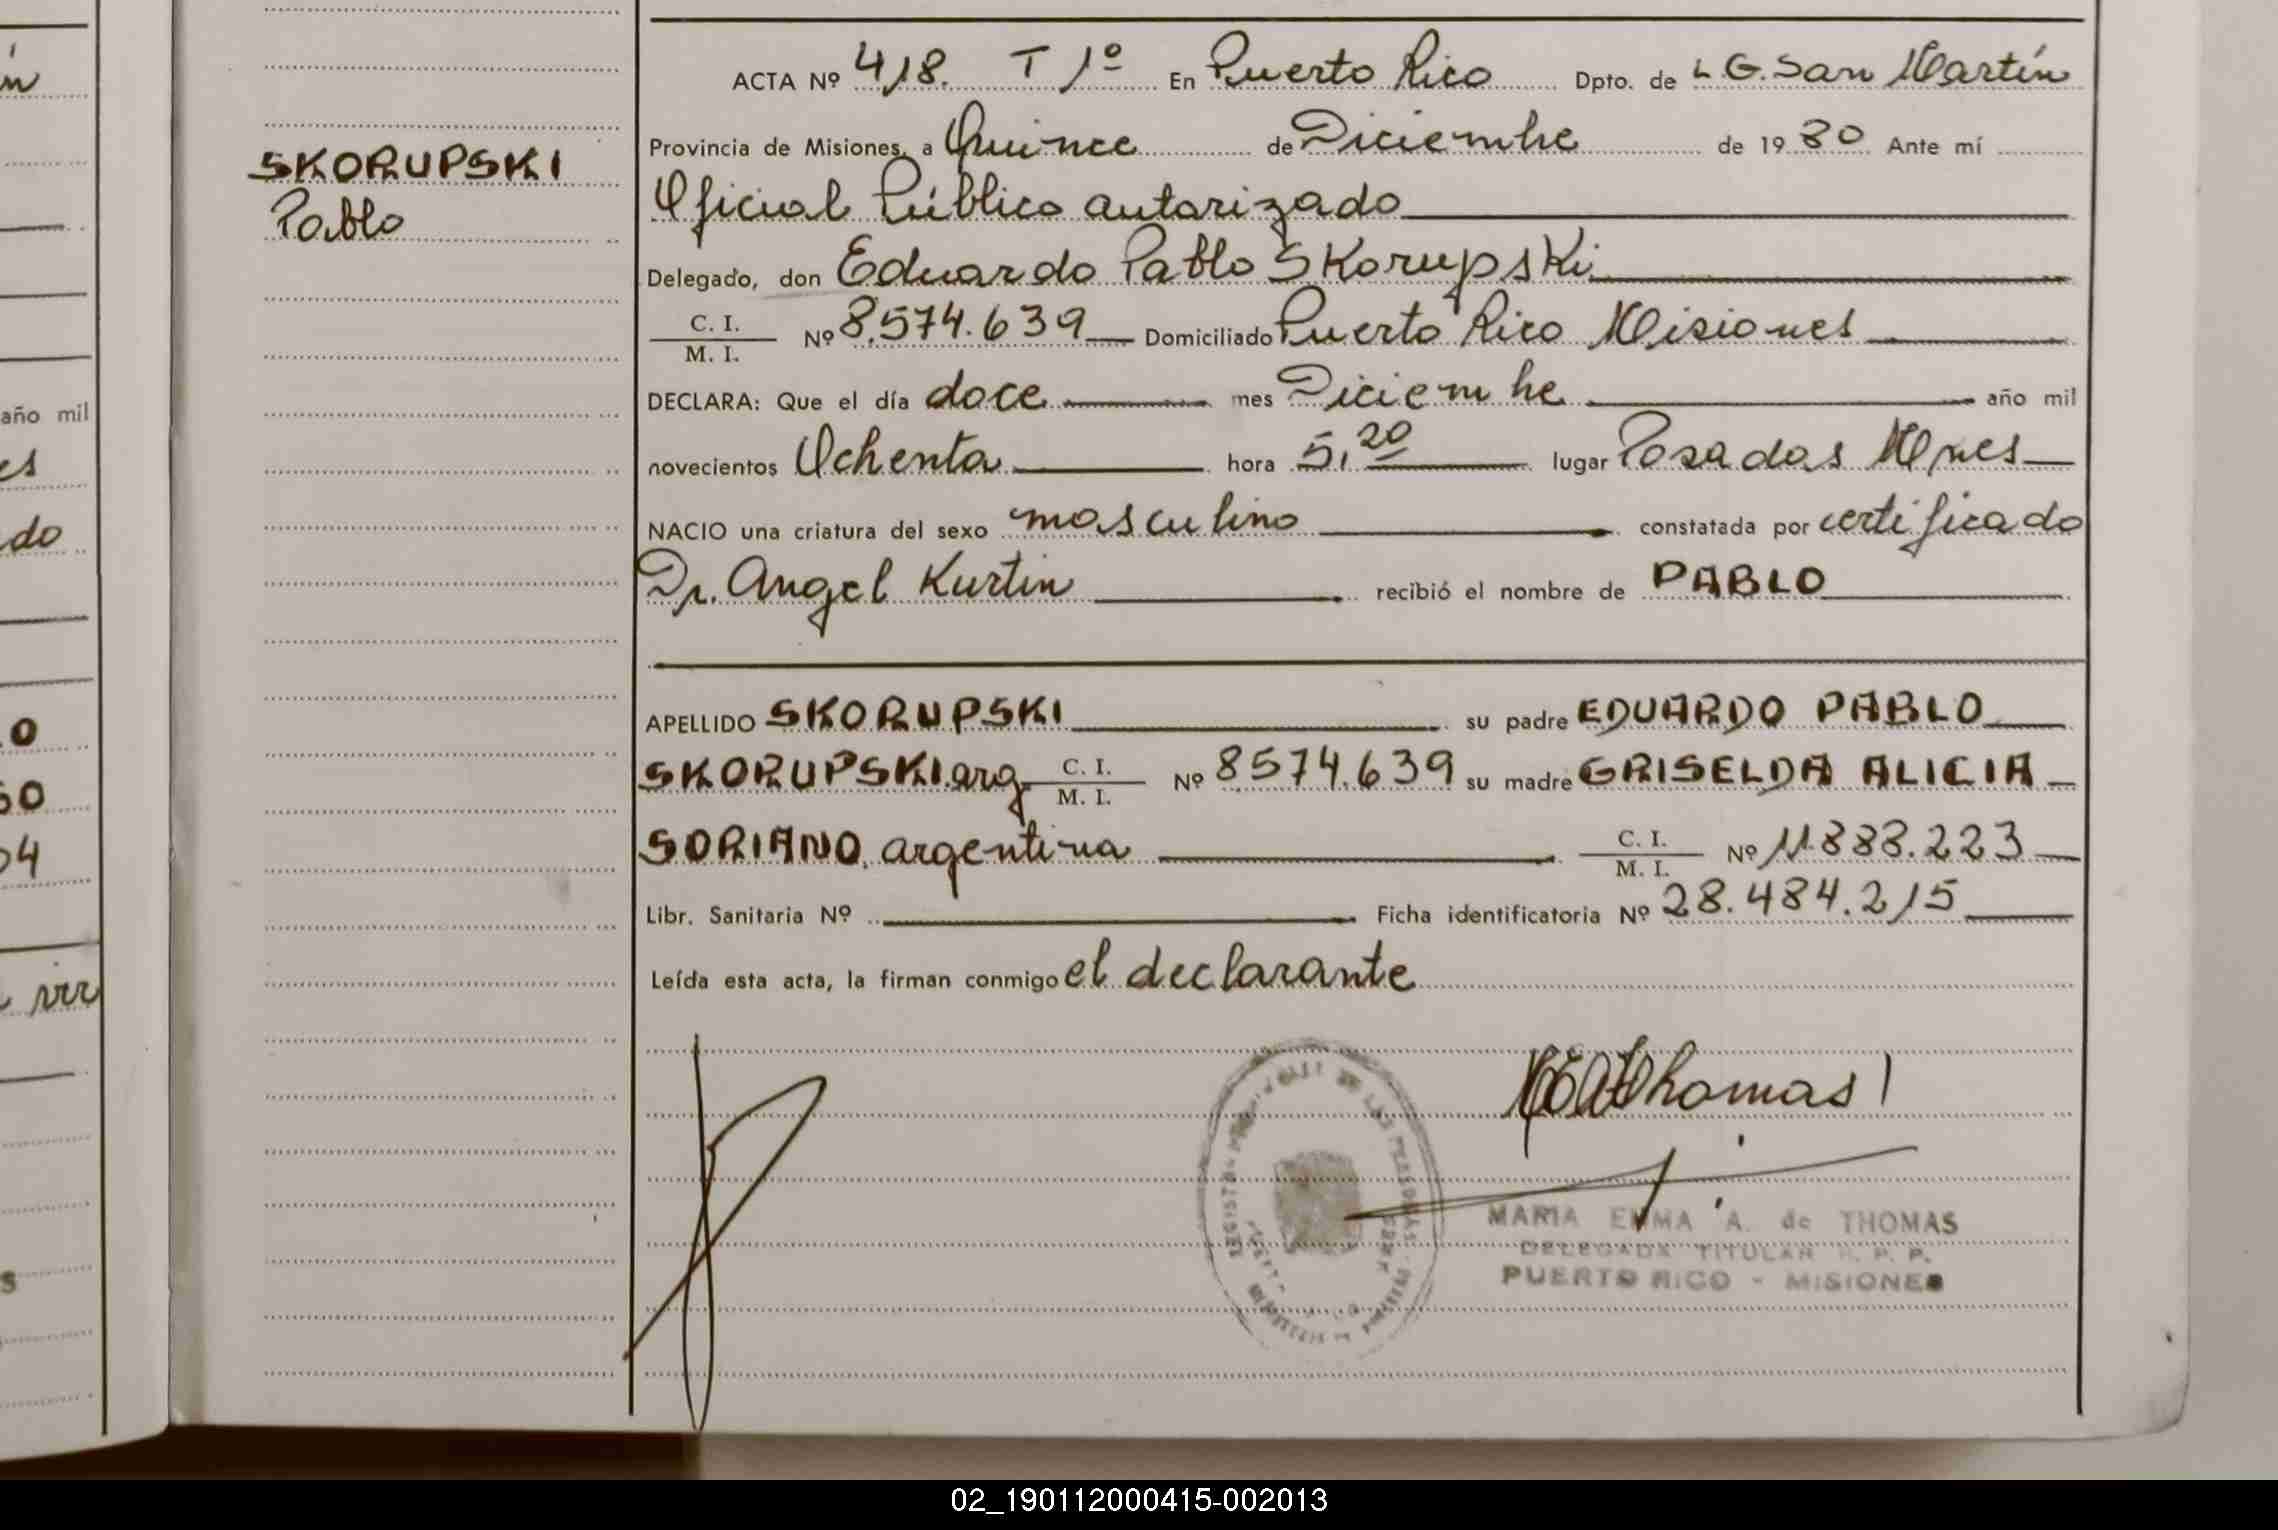 ACTA Nº 418. T 1º En Puerto Rico Dpto. de L.G. San Martín
Provincia de Misiones, a Quince de Diciembre de 1980 Ante mí
SKORUPSKI
Pablo
Oficial Público autorizado
Delegado, don Eduardo Pablo Skorupski
C. I. / M. I. Nº 8.574.639 Domiciliado Puerto Rico Misiones
DECLARA: Que el día doce mes Diciembre año mil
novecientos Ochenta hora 5,20 lugar Posadas Mnes
NACIO una criatura del sexo masculino constatada por certificado
Dr. Angel Kurtin recibió el nombre de PABLO
APELLIDO SKORUPSKI su padre EDUARDO PABLO
SKORUPSKI.arg C. I. / M. I. Nº 8574.639 su madre GRISELDA ALICIA
SORIANO, argentina C. I. / M. I. Nº 11.888.223
Libr. Sanitaria Nº Ficha identificatoria Nº 28.484.215
Leída esta acta, la firman conmigo el declarante
Thomas
MARIA EMMA A. de THOMAS
DELEGADA TITULAR R. P. P.
PUERTO RICO - MISIONES
año mil
02_190112000415-002013